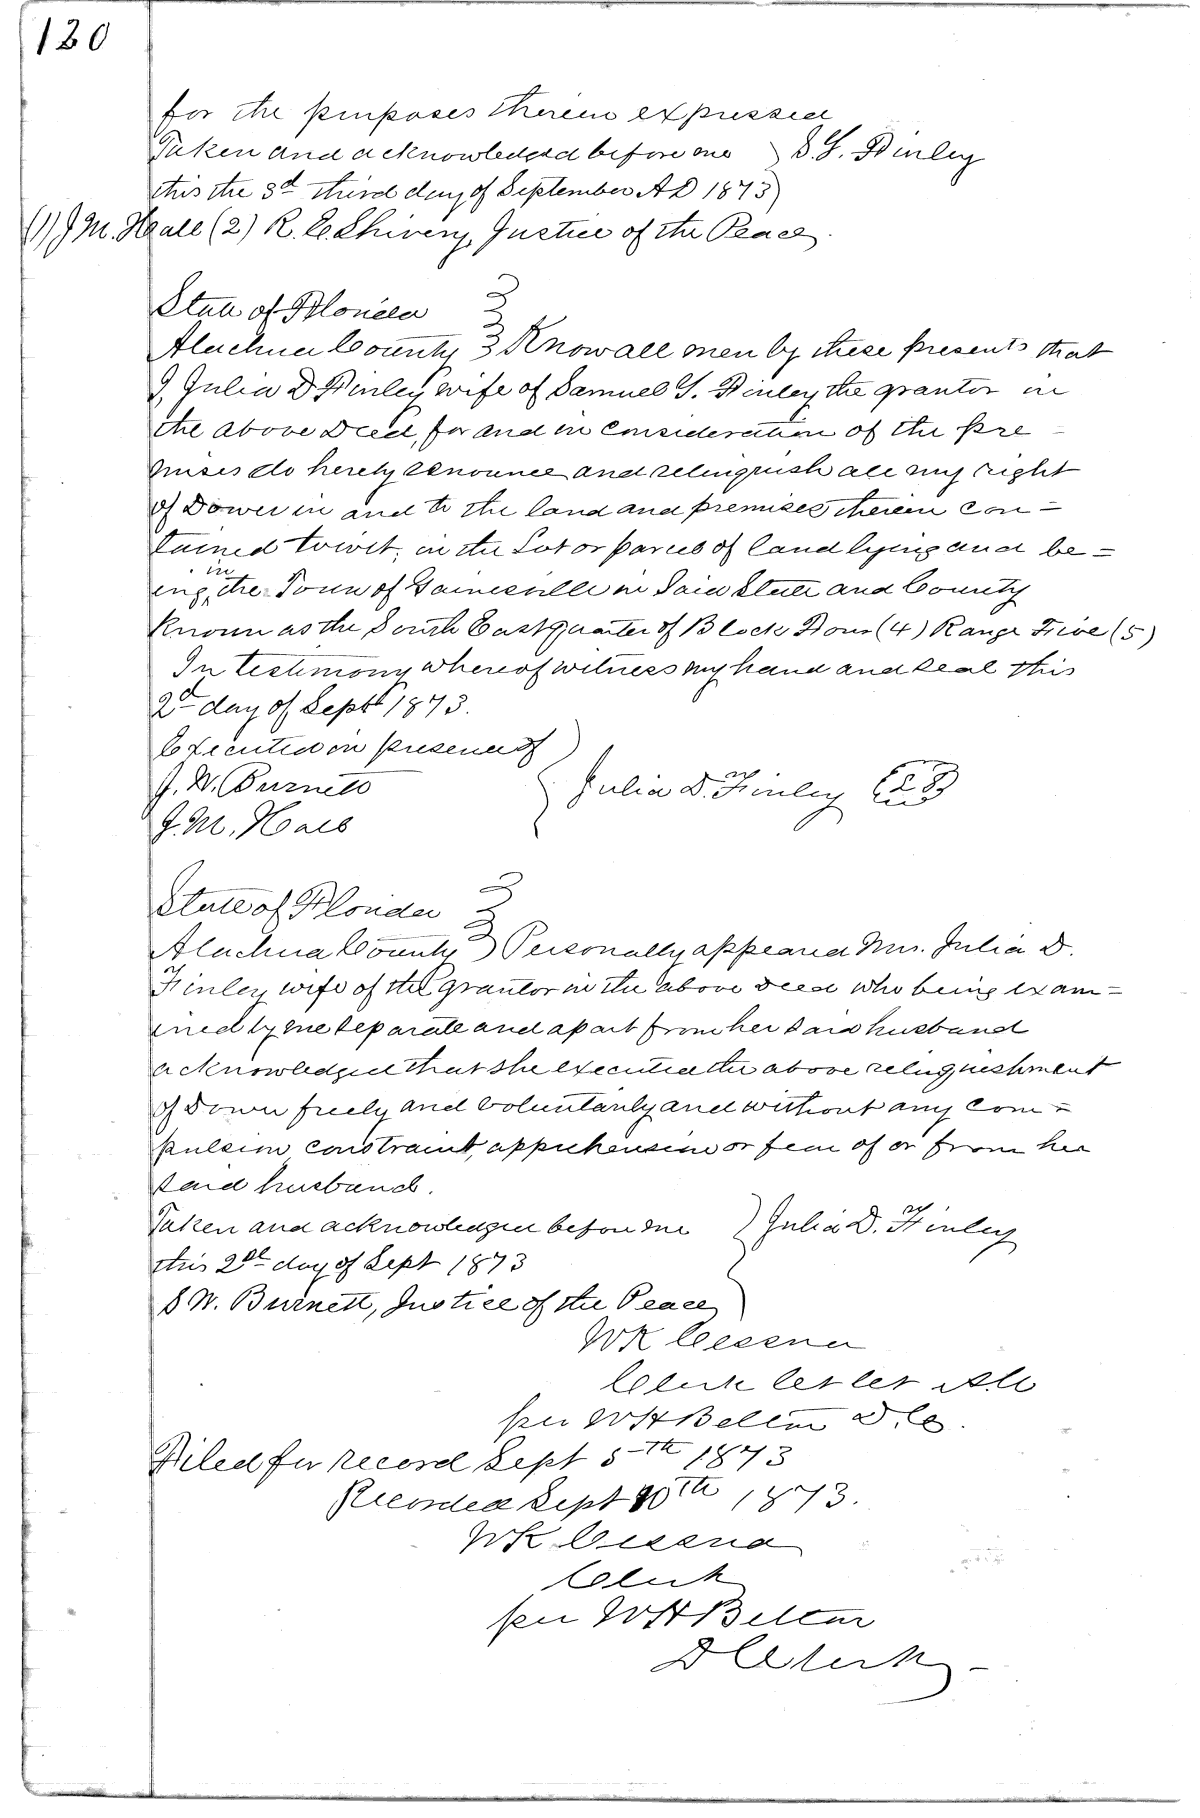 120
for the purposes therein expressed
Taken and acknowledged before me ) S. Y. Finley
this the 3d third day of September A D 1873)
(1) J M. Hall (2) R. E. Shivery, Justice of the Peace.
State of Florida
Alachua County } Know all men by these presents that
I, Julia D Finley wife of Samuel Y. Finley the grantor in
the above Deed, for and in consideration of the pre-
mises do herely renounce and relinquish all my right
of Dower in and to the land and premises therein con=
tained towit, in the Lot or parcel of land lying and be=
ing, in the Town of Gainesville in Said State and County
Known as the South East quarter of Block Four (4) Range Five (5)
In testimony whereof witness my hand and seal this
2d day of Sept 1873.
Executed in presence of )
J. W. Burnett { Julia D. Finley
J. M. Hall
State of Florida
Alachua County } Personally appeared Mrs. Julia D.
Finley wife of the grantor in the above Deed who being exam=
ined by me separate and apart from her said husband
acknowledged that she executed the above relinquishment
of Dower freely and voluntarily and without any com=
pulsion, constraint, apprehension or fear of or from her
said husband.
Taken and acknowledged before me } Julia D. Finley
this 2d day of Sept 1873
S W. Burnett, Justice of the Peace
WK Cessna
Clerk Cct Cct A.Co
per WH Belton D. C.
Filed for record Sept 5th 1873
Recorded Sept 10th 1873.
WK Cessna
Clerk
per WH Belton
D Clerk -